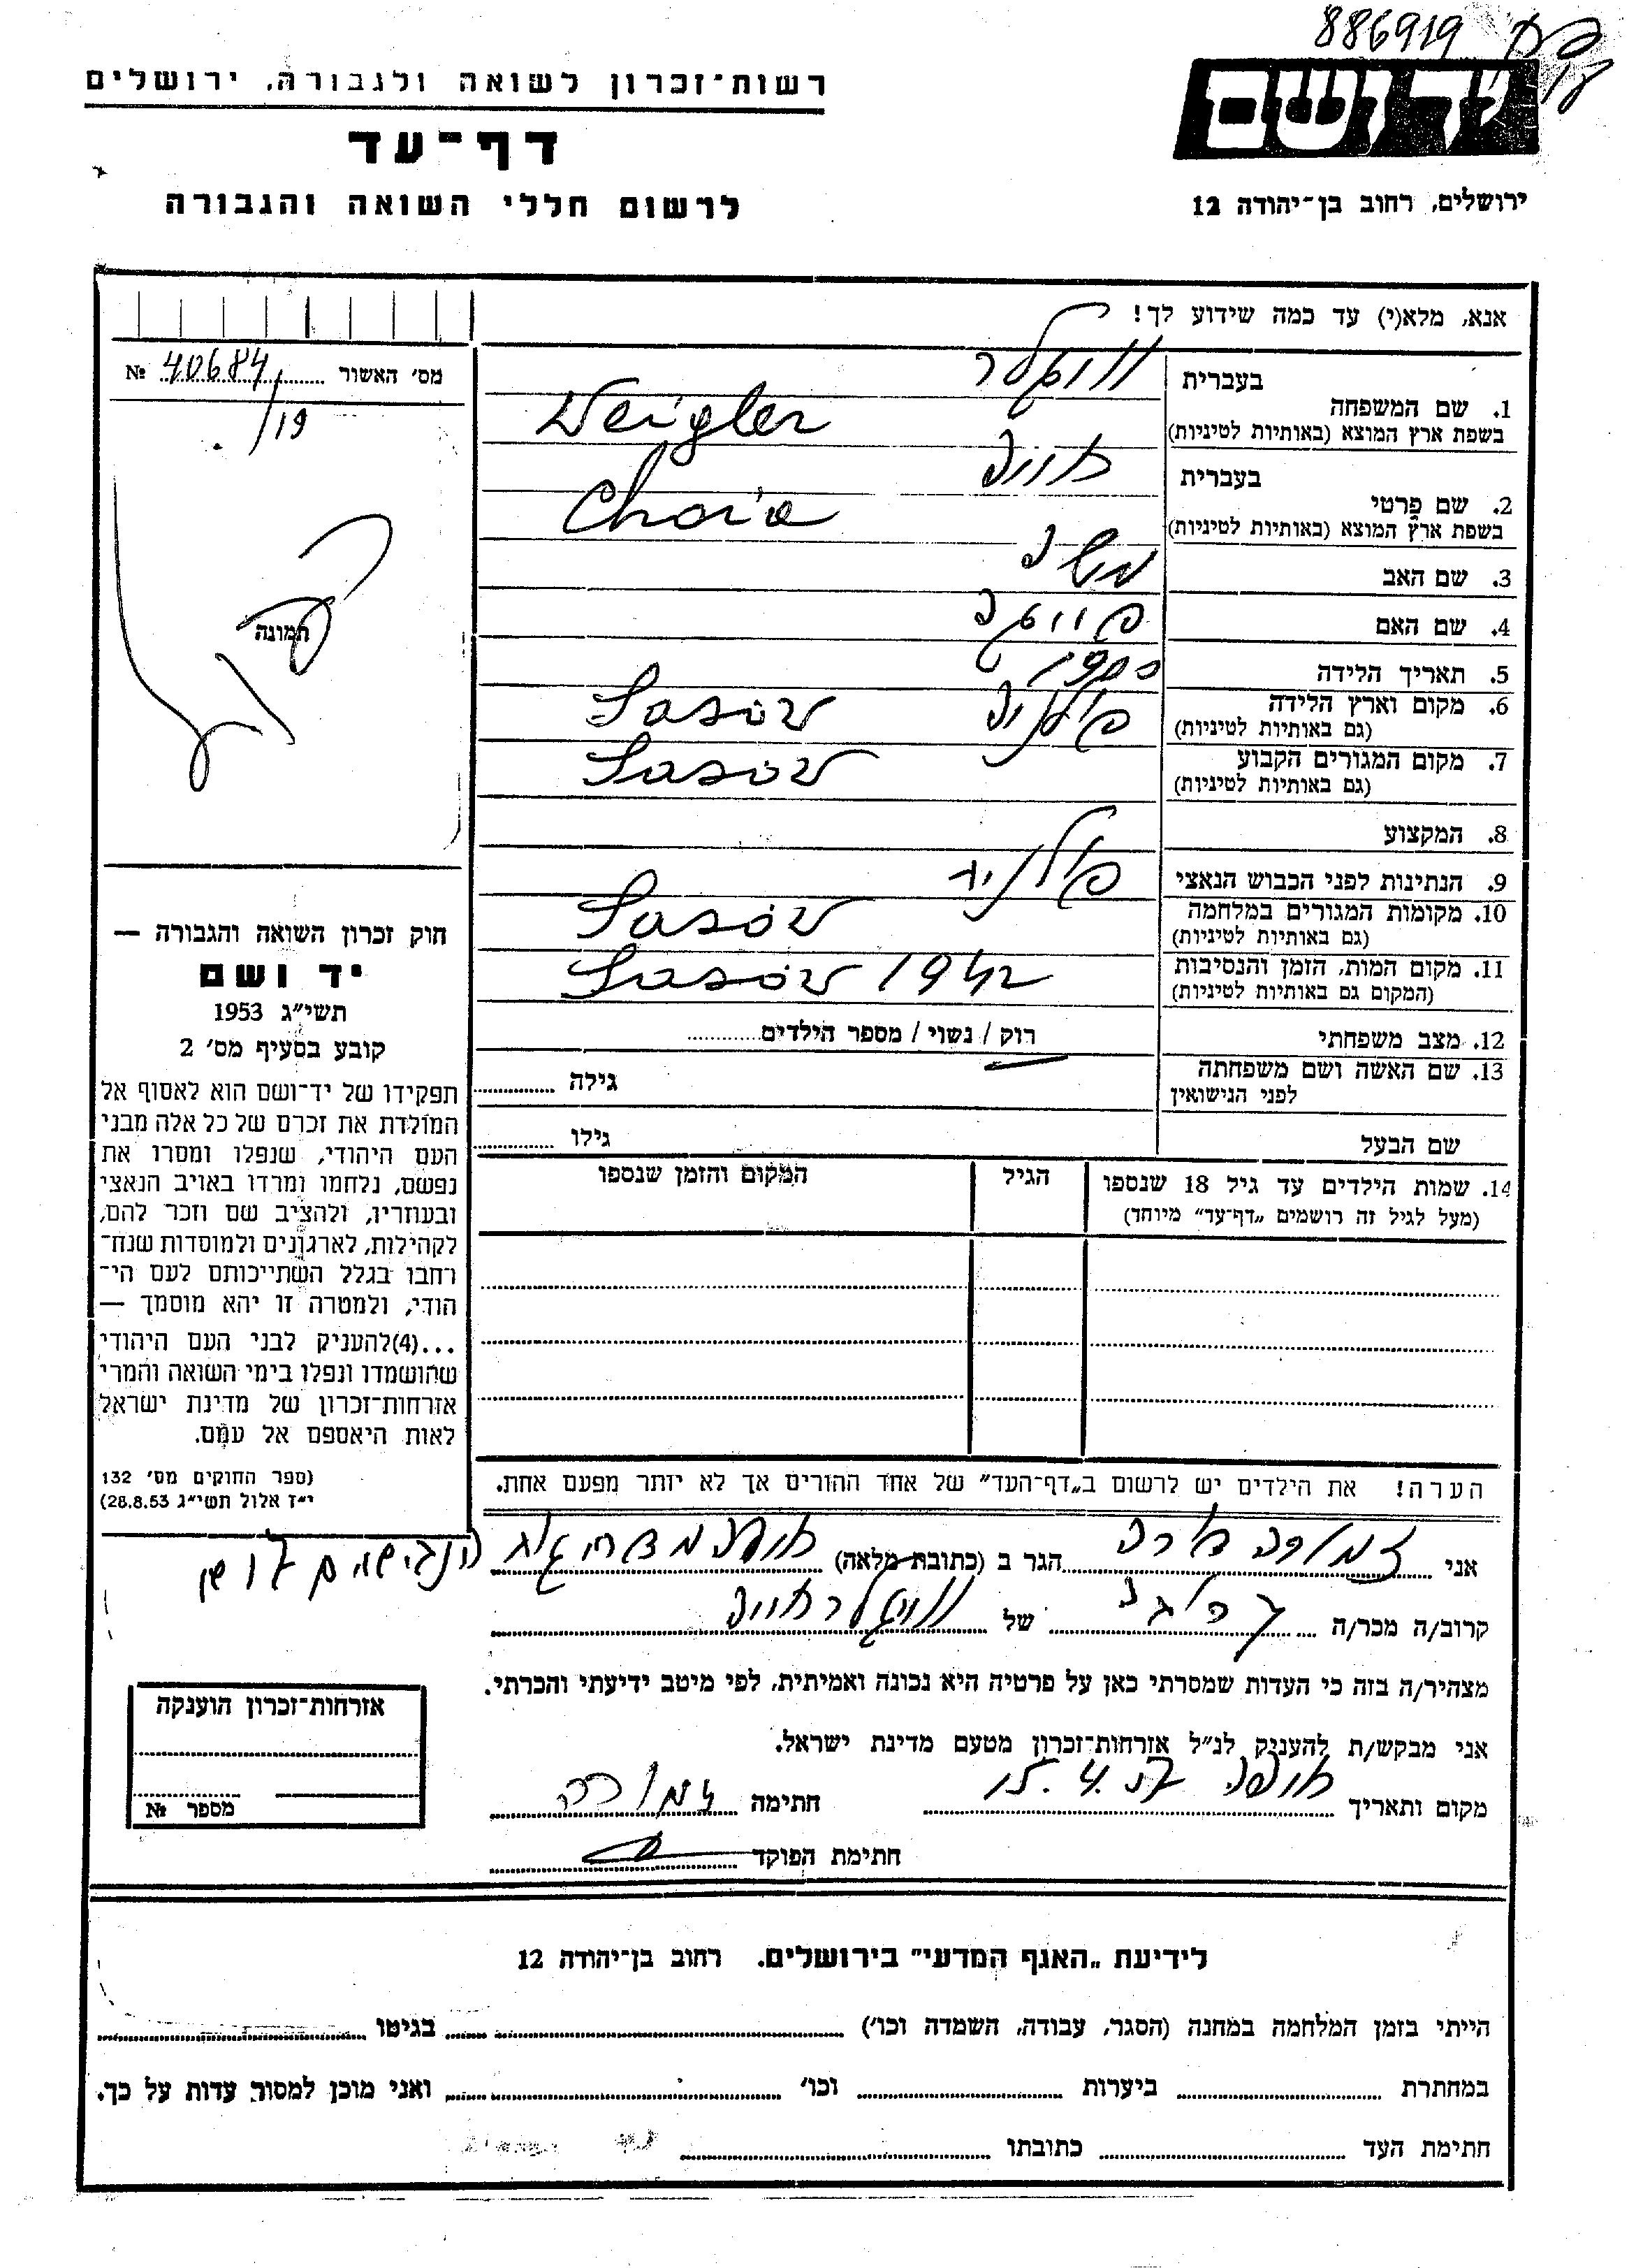 886919
רשות-זכרון לשואה ולגבורה, ירושלים
דף-עד
לרשום חללי השואה והגבורה
יד ושם
ירושלים, רחוב בן-יהודה 12
אנא, מלא(י) עד כמה שידוע לך!
מס' האשור 40684 №
/19
תמונה
1. שם המשפחה
בעברית
בשפת ארץ המוצא (באותיות לטיניות) Weigler
2. שם פרטי
בעברית
בשפת ארץ המוצא (באותיות לטיניות)
3. שם האב משה
4. שם האם
5. תאריך הלידה 1900
6. מקום וארץ הלידה Sasów פולניה
(גם באותיות לטיניות)
7. מקום המגורים הקבוע Sasów
(גם באותיות לטיניות)
8. המקצוע
9. הנתינות לפני הכבוש הנאצי פולנית
10. מקומות המגורים במלחמה Sasów
(גם באותיות לטיניות)
11. מקום המות, הזמן והנסיבות Sasów 1942
(המקום גם באותיות לטיניות)
12. מצב משפחתי רוק / נשוי / מספר הילדים
13. שם האשה ושם משפחתה גילה
לפני הנישואין
שם הבעל גילו
14. שמות הילדים עד גיל 18 שנספו הגיל המקום והזמן שנספו
(מעל לגיל זה רושמים „דף-עד" מיוחד)
הערה! את הילדים יש לרשום ב„דף-העד" של אחד ההורים אך לא יותר מפעם אחת.
חוק זכרון השואה והגבורה —
יד ושם
תשי"ג 1953
קובע בסעיף מס' 2
תפקידו של יד-ושם הוא לאסוף אל
המולדת את זכרם של כל אלה מבני
העם היהודי, שנפלו ומסרו את
נפשם, נלחמו ומרדו באויב הנאצי
ובעוזריו, ולהציב שם וזכר להם,
לקהילות, לארגונים ולמוסדות שנח-
רחבו בגלל השתייכותם לעם הי-
הודי, ולמטרה זו יהא מוסמך —
...(4)להעניק לבני העם היהודי
שהושמדו ונפלו בימי השואה והמרי
אזרחות-זכרון של מדינת ישראל
לאות היאספם אל עמם.
(ספר החוקים מס' 132
י"ז אלול תשי"ג 28.8.53)
אני הגר ב (כתובת מלאה)
קרוב/ה מכר/ה של
מצהיר/ה בזה כי העדות שמסרתי כאן על פרטיה היא נכונה ואמיתית, לפי מיטב ידיעתי והכרתי.
אני מבקש/ת להעניק לנ"ל אזרחות-זכרון מטעם מדינת ישראל.
מקום ותאריך חתימה
חתימת הפוקד
אזרחות-זכרון הוענקה
מספר №
לידיעת „האגף המדעי" בירושלים. רחוב בן-יהודה 12
הייתי בזמן המלחמה במחנה (הסגר, עבודה, השמדה וכו') בגיטו
במחתרת ביערות וכו' ואני מוכן למסור עדות על כך.
חתימת העד כתובתו